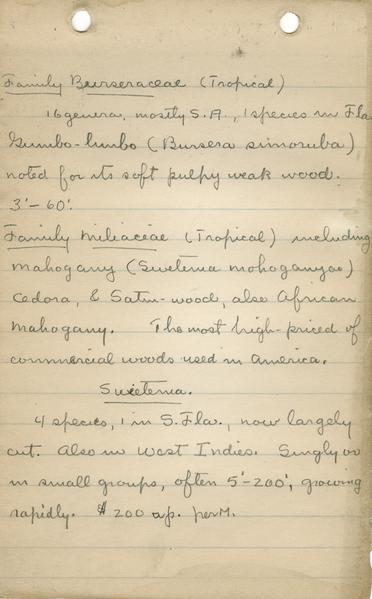 Family Burseraceae (Tropical)
16 genera, mostly S.A., 1 species in Fla
Gumbo-limbo (Bursera simoruba)
noted for its soft pulpy weak wood.
3'-60'.
Family Miliaceae (Tropical) including
mahogany (Swetenia mohoganyao)
Cedora, & Satin-wood, also African
Mahogany. The most high-priced of
commercial woods used in America.
Swietenia.
4 species, 1 in S. Fla., now largely
cut. Also in West Indies. Singly or
in small groups, often 5'-200', growing
rapidly. $200 ap. per M.